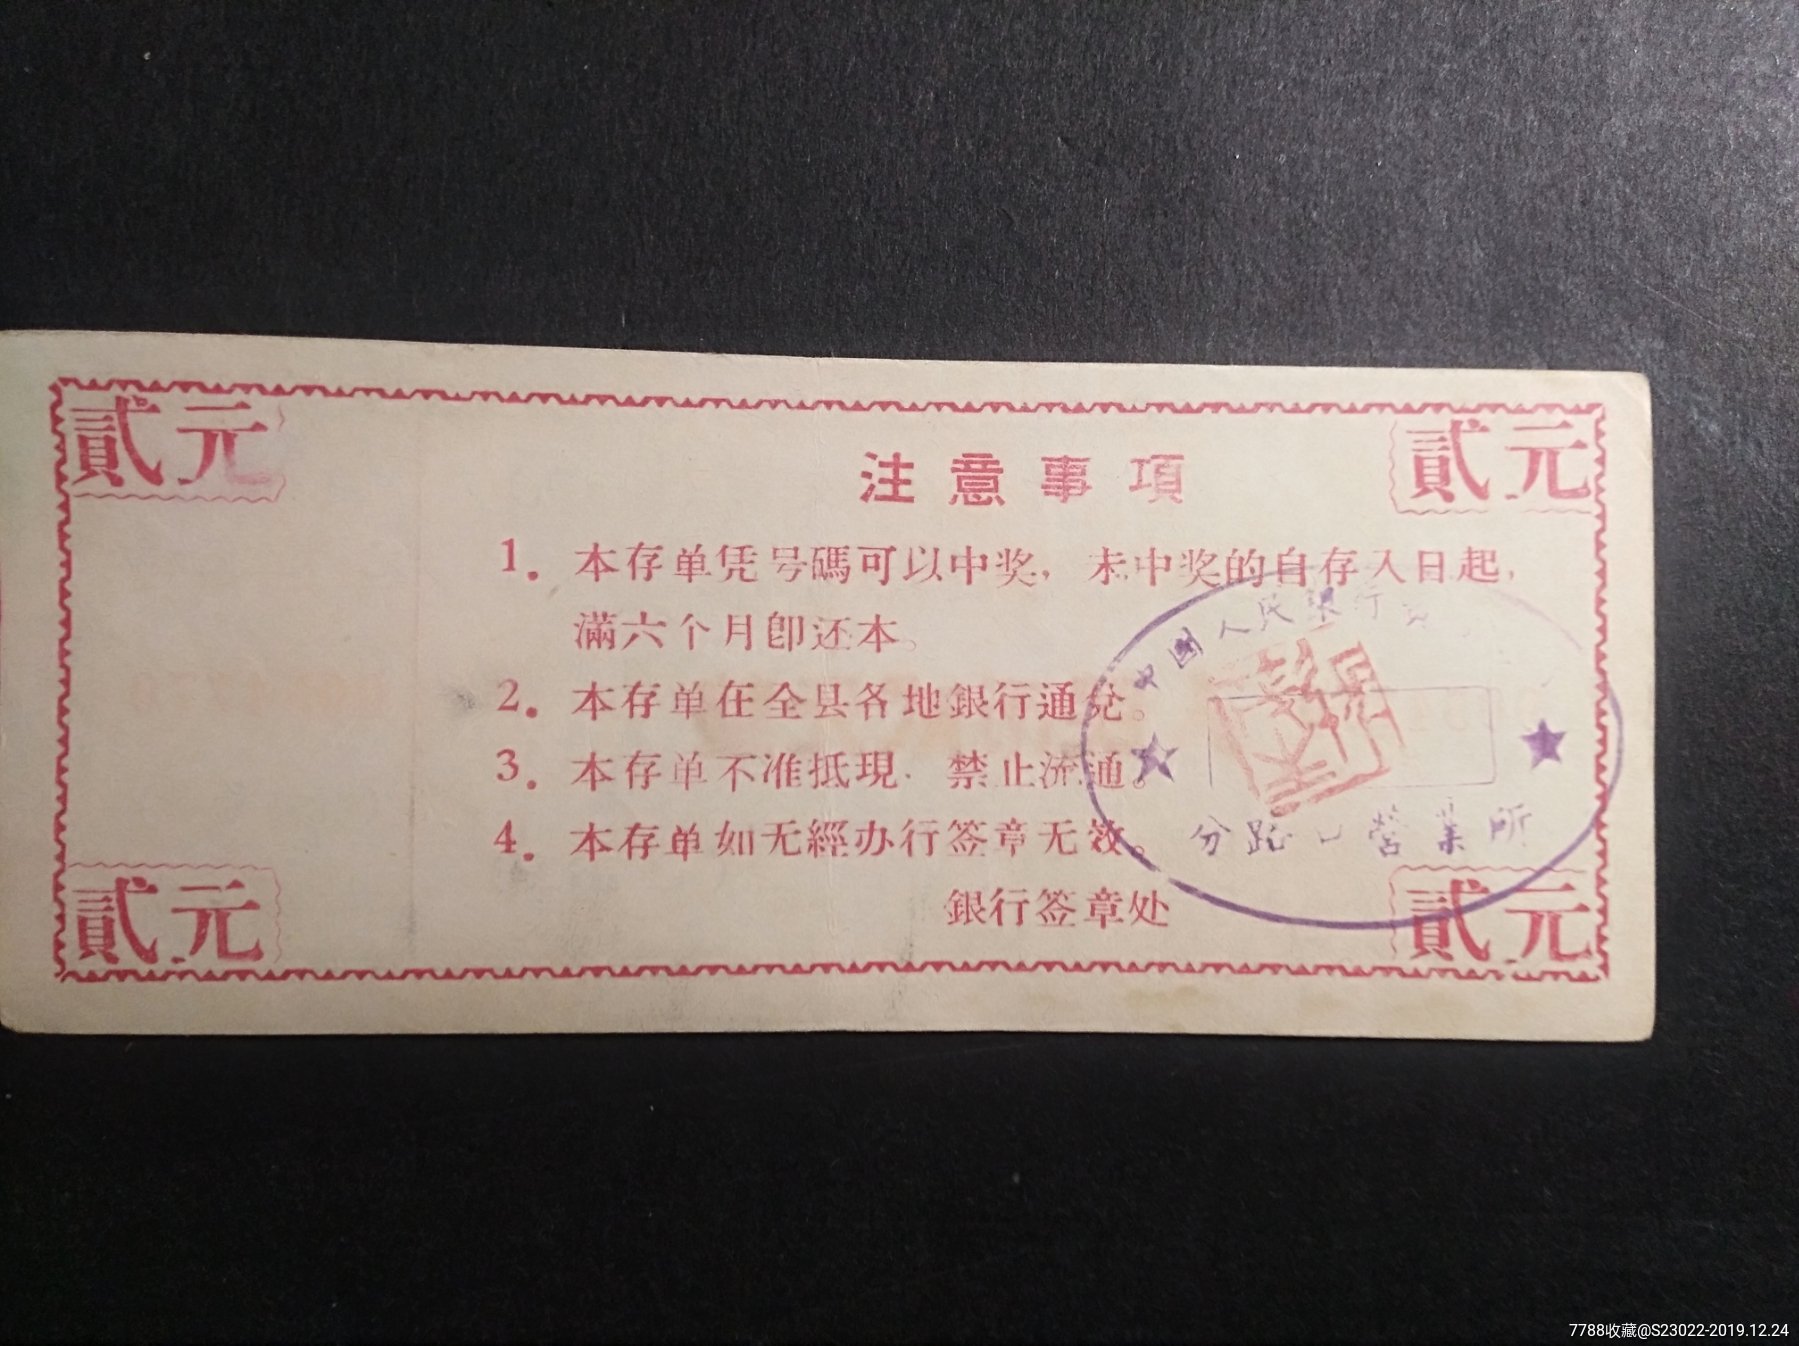 貳元
貳元
注意事項
1. 本存单凭号碼可以中奖，未中奖的自存入日起，
滿六个月卽还本。
2. 本存单在全县各地銀行通兌。
3. 本存单不准抵現，禁止流通。
4. 本存单如无經办行签章无效。
銀行签章处
中國人民銀行
分路口營業所
貳元
貳元
7788收藏@S23022-2019.12.24